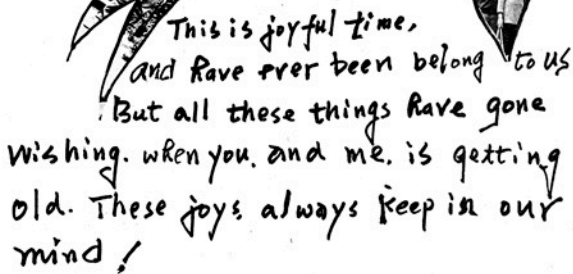 This is joyful time,
and have ever been belong to us
But all these things have gone
wishing. when you, and me, is getting
old. These joys, always keep in our
mind!